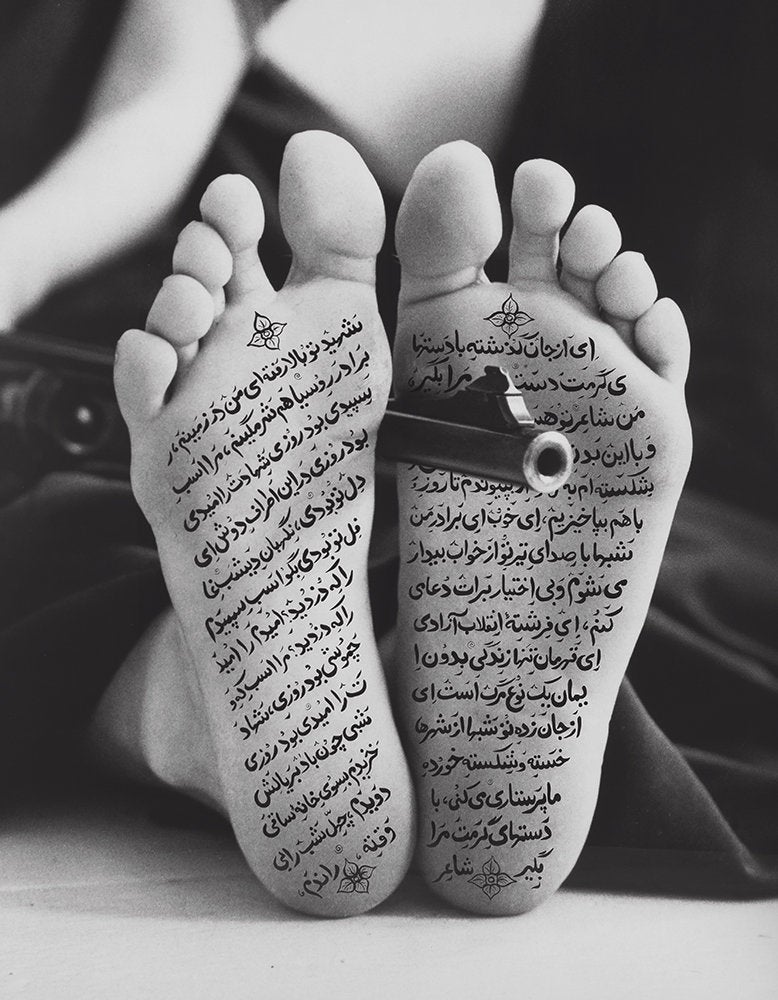 ای از جان گذشته با دستها
ی گرمت دست مرا بگیر،
من شاعر تو
و با این
شکسته ام به پیوندم تا روز
با هم بپاخیزیم، ای خوب ای برادر من
شبها با صدای تیر تو از خواب بیدار
می شوم و بی اختیار برات دعای
کنم، ای فرشته انقلاب آزادی
ای قهرمان تنها زندگی بدون ا
یمان یک نوع مرگ است ای
از جان زده تو شبها از شهرها
خسته و شکسته خورده
ما پرستاری می کنی، با
دستهای گرمت مرا
بگیر شاعر
شهید تو بالا رفته ای من در زمینم، ر
برادر رو سیاهم شرمگینم، مرا اسب
سپیدی بود روزی شهادت را امیدی
بود روزی در این اطراف دوش ای
دل تو بودی، نگهبان دیشب غا
فل تو بودی بگو اسب سپیدم
را که دزدید؛ امیدم را امید
را که دزدید؛ مرا اسب که و
چموشی بود روزی، شهاد
ت را امیدی بود روزی
شبی چون باد بریالش
خزیدم بسوی خانه ساقی
دویدم چهل شب را بی
وقفه، راندم،